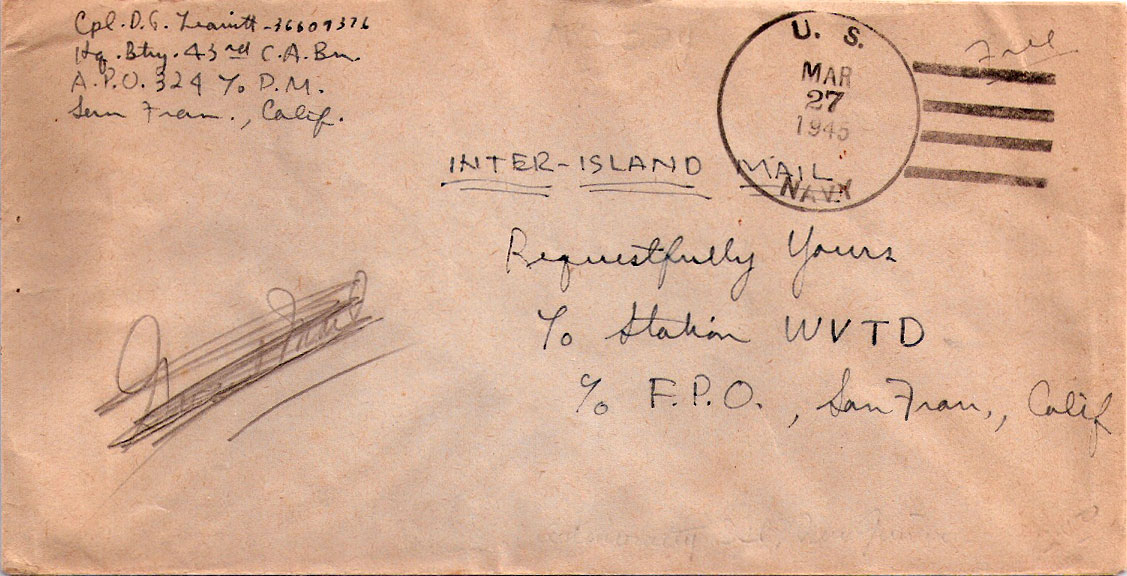 Cpl. D. G. Leavitt - 36609376
Hq. Btry. 43rd C.A. Bn.
A.P.O. 324 c/o P.M.
San Fran., Calif.
U. S.
MAR
27
1945
NAVY
Free
INTER-ISLAND MAIL
Requestfully Yours
c/o Station WVTD
c/o F.P.O., San Fran., Calif